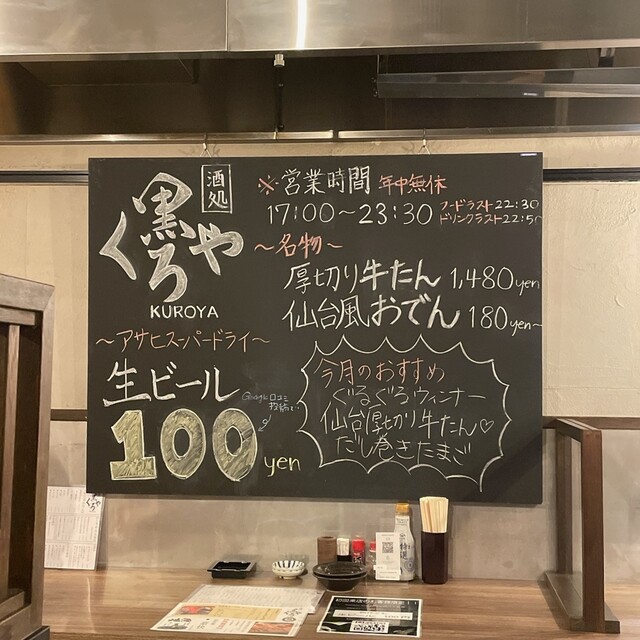 酒処
黒
くろや
KUROYA
※営業時間 年中無休
17:00～23:30 フードラスト22:30
ドリンクラスト22:50
～名物～
厚切り牛たん 1,480yen
仙台風おでん 180yen～
～アサヒスーパードライ～
生ビール
Google口コミ
投稿で
100yen
今月のおすすめ
ぐるぐるウィンナー
仙台厚切り牛たん♡
だし巻きたまご